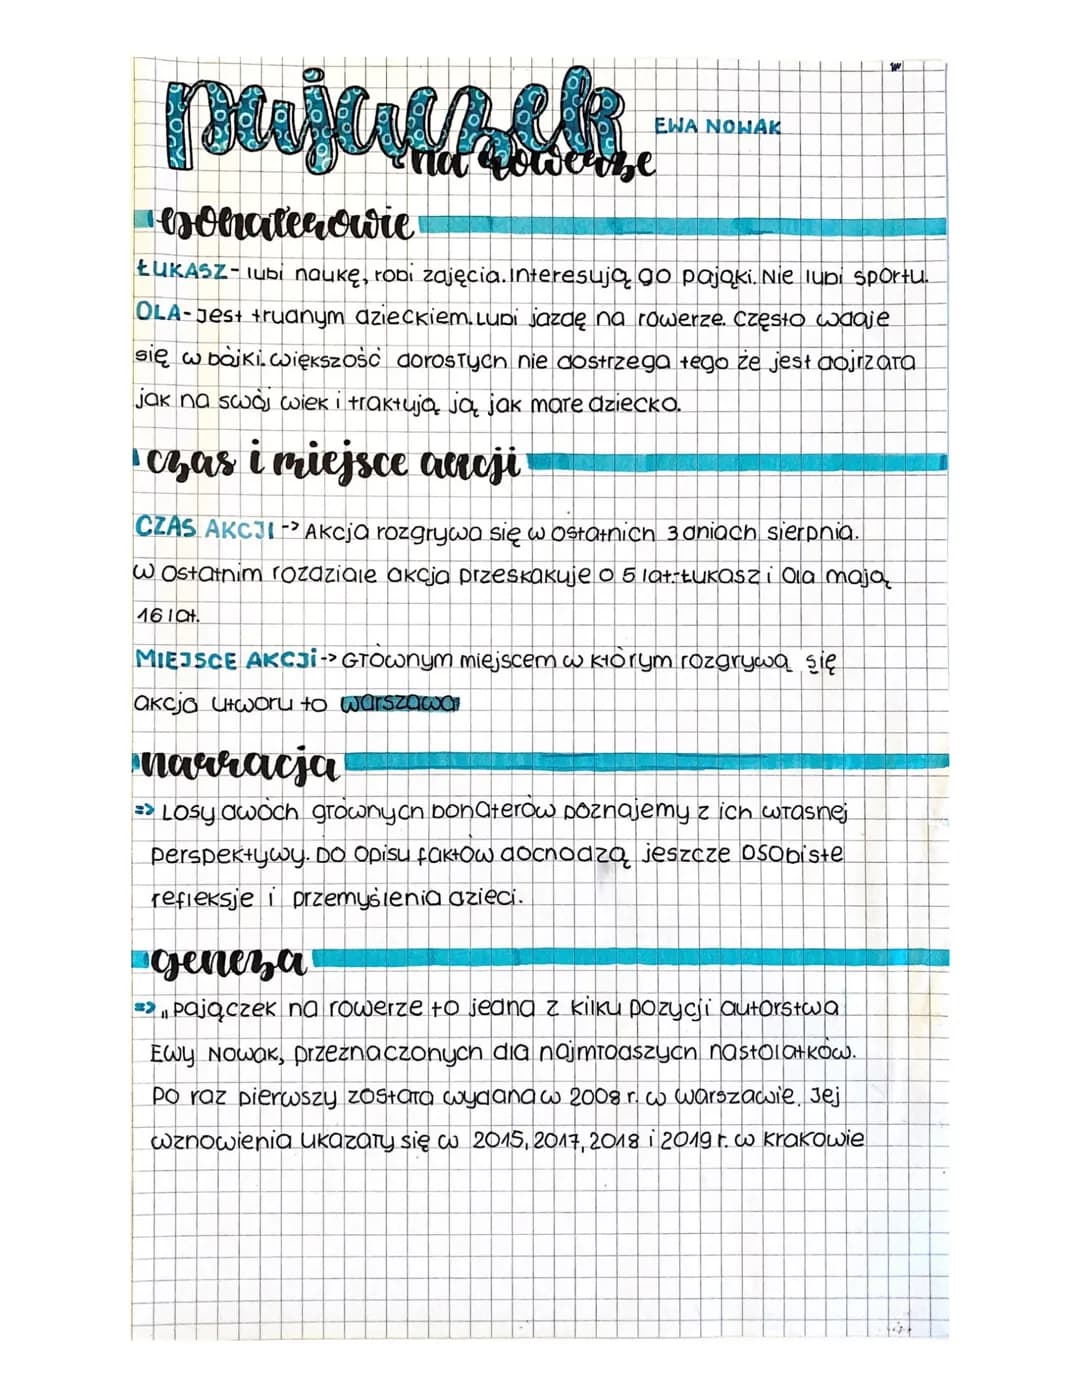 pajączek
EWA NOWAK
na rowerze
bohaterowie
ŁUKASZ- lubi naukę, robi zajęcia. Interesują go pająki. Nie lubi sportu.
OLA- Jest trudnym dzieckiem. Lubi jazdę na rowerze. Często wdaje
się w bójki. większość dorosłych nie dostrzega tego że jest dojrzała
jak na swój wiek i traktują ją jak małe dziecko.
czas i miejsce akcji
CZAS AKCJI -> Akcja rozgrywa się w ostatnich 3 dniach sierpnia.
W Ostatnim rozdziale akcja przeskakuje o 5 lat-Łukasz i Ola mają
16 lat.
MIEJSCE AKCJi -> Głównym miejscem w którym rozgrywa się
akcja utworu to warszawa
narracja
=> Losy dwóch głównych bohaterów poznajemy z ich własnej
perspektywy. Do Opisu faktów dochodzą jeszcze osobiste
refleksje i przemyślenia dzieci.
geneza
=> „Pajączek na rowerze to jedna z kilku pozycji autorstwa
Ewy Nowak, przeznaczonych dla najmłodszych nastolatków.
Po raz pierwszy została wydana w 2008 r. w Warszawie. Jej
wznowienia ukazały się w 2015, 2017, 2018 i 2019 r. w Krakowie